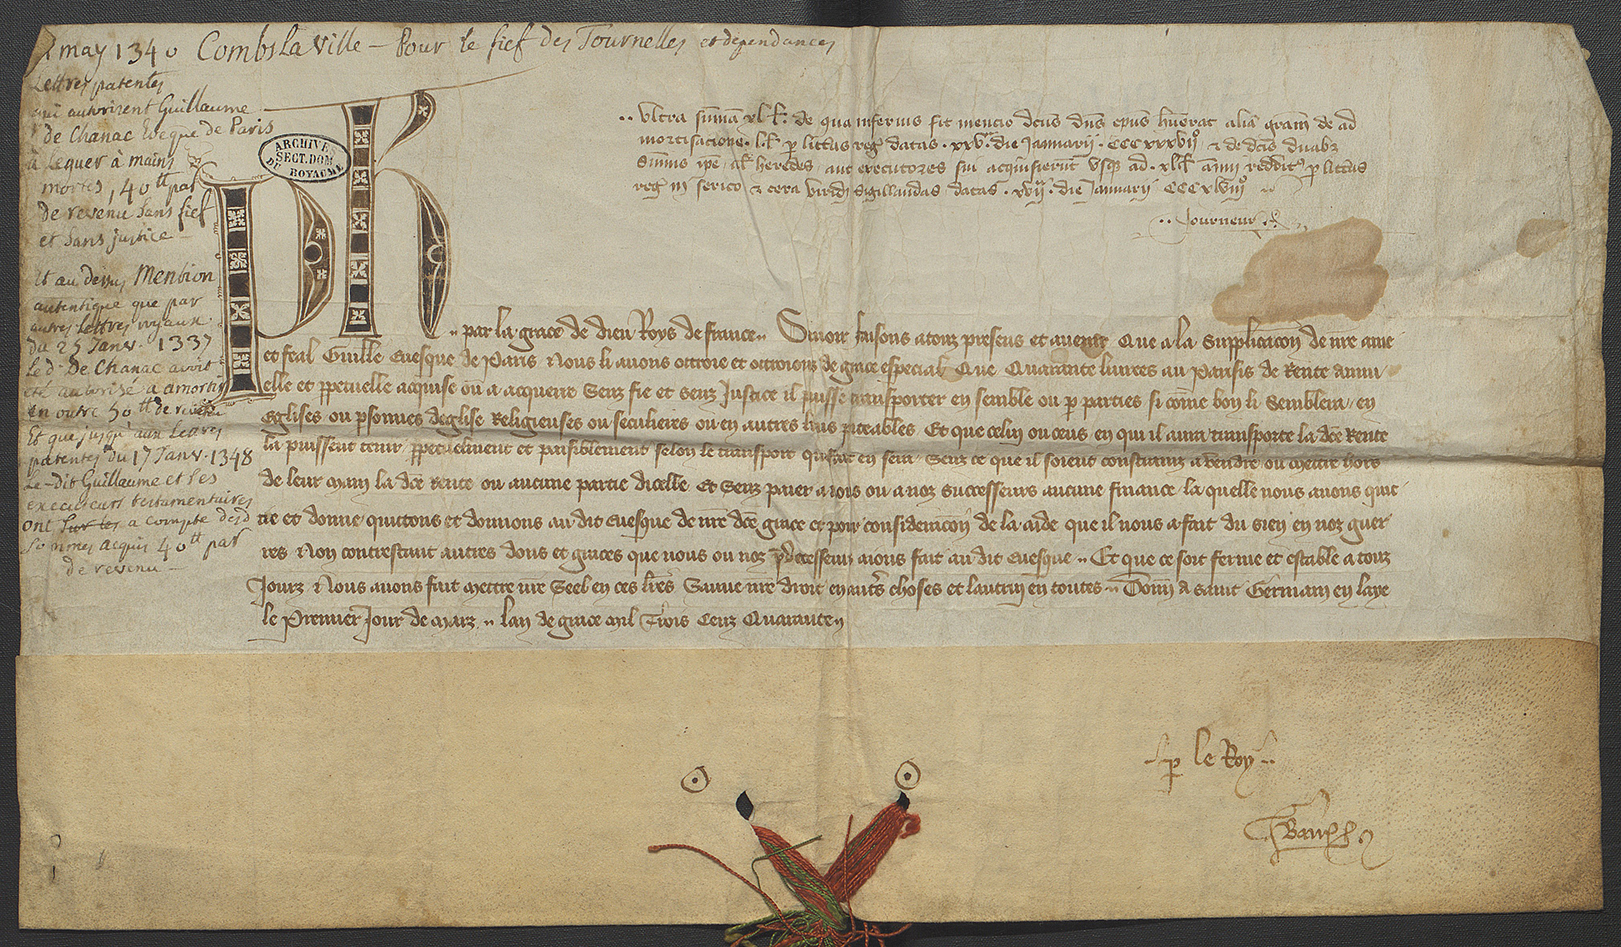 may 1340 Combs la Ville – Pour le fief des Tournelles et dependances
Lettres patentes
qui autorisent Guillaume
de Chanac Eveque de Paris
à leguer à mains
mortes, 40 ₶ par
de revenu sans fief
et sans justice –
Et au dessus Mention
autentique que par
autres Lettres royaux
du 25 Janv. 1337
Le d. De Chanac avoit
été autorisé a amortir
en outre 50 ₶ de revenu
Et que jusqu'aux Lettres
patentes du 17 Janv. 1348
Le-dit Guillaume et ses
executeurs testamentaires
ont sur les a compte desd
sommes acquis 40 ₶ par
de revenu –
ARCHIVES
SECT. DOM
DU ROYAUME
Ultra sūmā xl. l. de qua inferius fit mencio dc̄us dn̄s ep̄us hūerat aliā grām de ad
mortisacione l. l. p litt̄as reḡ datas xxv. die Januarii CCCxxxvii & de dc̄is duabȝ
sūmis ip̄e heredes aut executores sui acquisierūt usqȝ ad xl l. annui redditꝰ p litt̄as
reḡ in serico & cera viridi sigillandas datas xvii. die Januarii CCCxlviii
Journeur
Ph par la grace de dieu Roys de france Savoir faisons a touz presens et avenir Que a la Supplicacōn de nr̄e ame
et feal Guille Evesque de Paris Nous li avons ottroie et ottroions de grace especial Que Quarante livrees au Parisis de Rente annu
elle et ppetuelle acquise ou a acquerre Senz fie et senz Justice il puisse transporter en semble ou p parties si cōme bon li Semblera en
Eglises ou psonnes deglise Religieuses ou seculieres ou en autres lieus piteables Et que celui ou ceus en qui il aura transporte la dc̄e Rente
la puissent tenir ppetuelment et paisiblement selon le transport qui fait en sera Senz ce que il soient constrainz a vendre ou mettre hors
de leur main la dc̄e Rente ou aucune partie dicelle Et Senz paier a nos ou a noz successeurs aucune finance la quelle nous avons quit
tie et donne quittons et donnons au dit Evesque de nr̄e dc̄e grace et pour consideracōn de la aide que il nous a fait du sien en noz guer
res Non contrestant autres dons et graces que nous ou noz p̄decesseurs aions fait au dit Evesque Et que ce soit ferme et estable a touz
Jourz Nous avons fait mettre nr̄e Seel en ces lr̄es Sauve nr̄e droit en autr̄s choses et lautrui en toutes Donn̄ a saint Germain en laye
le Premier Jour de Marz lan de grace Mil Trois Cenz Quarante
p le Roy